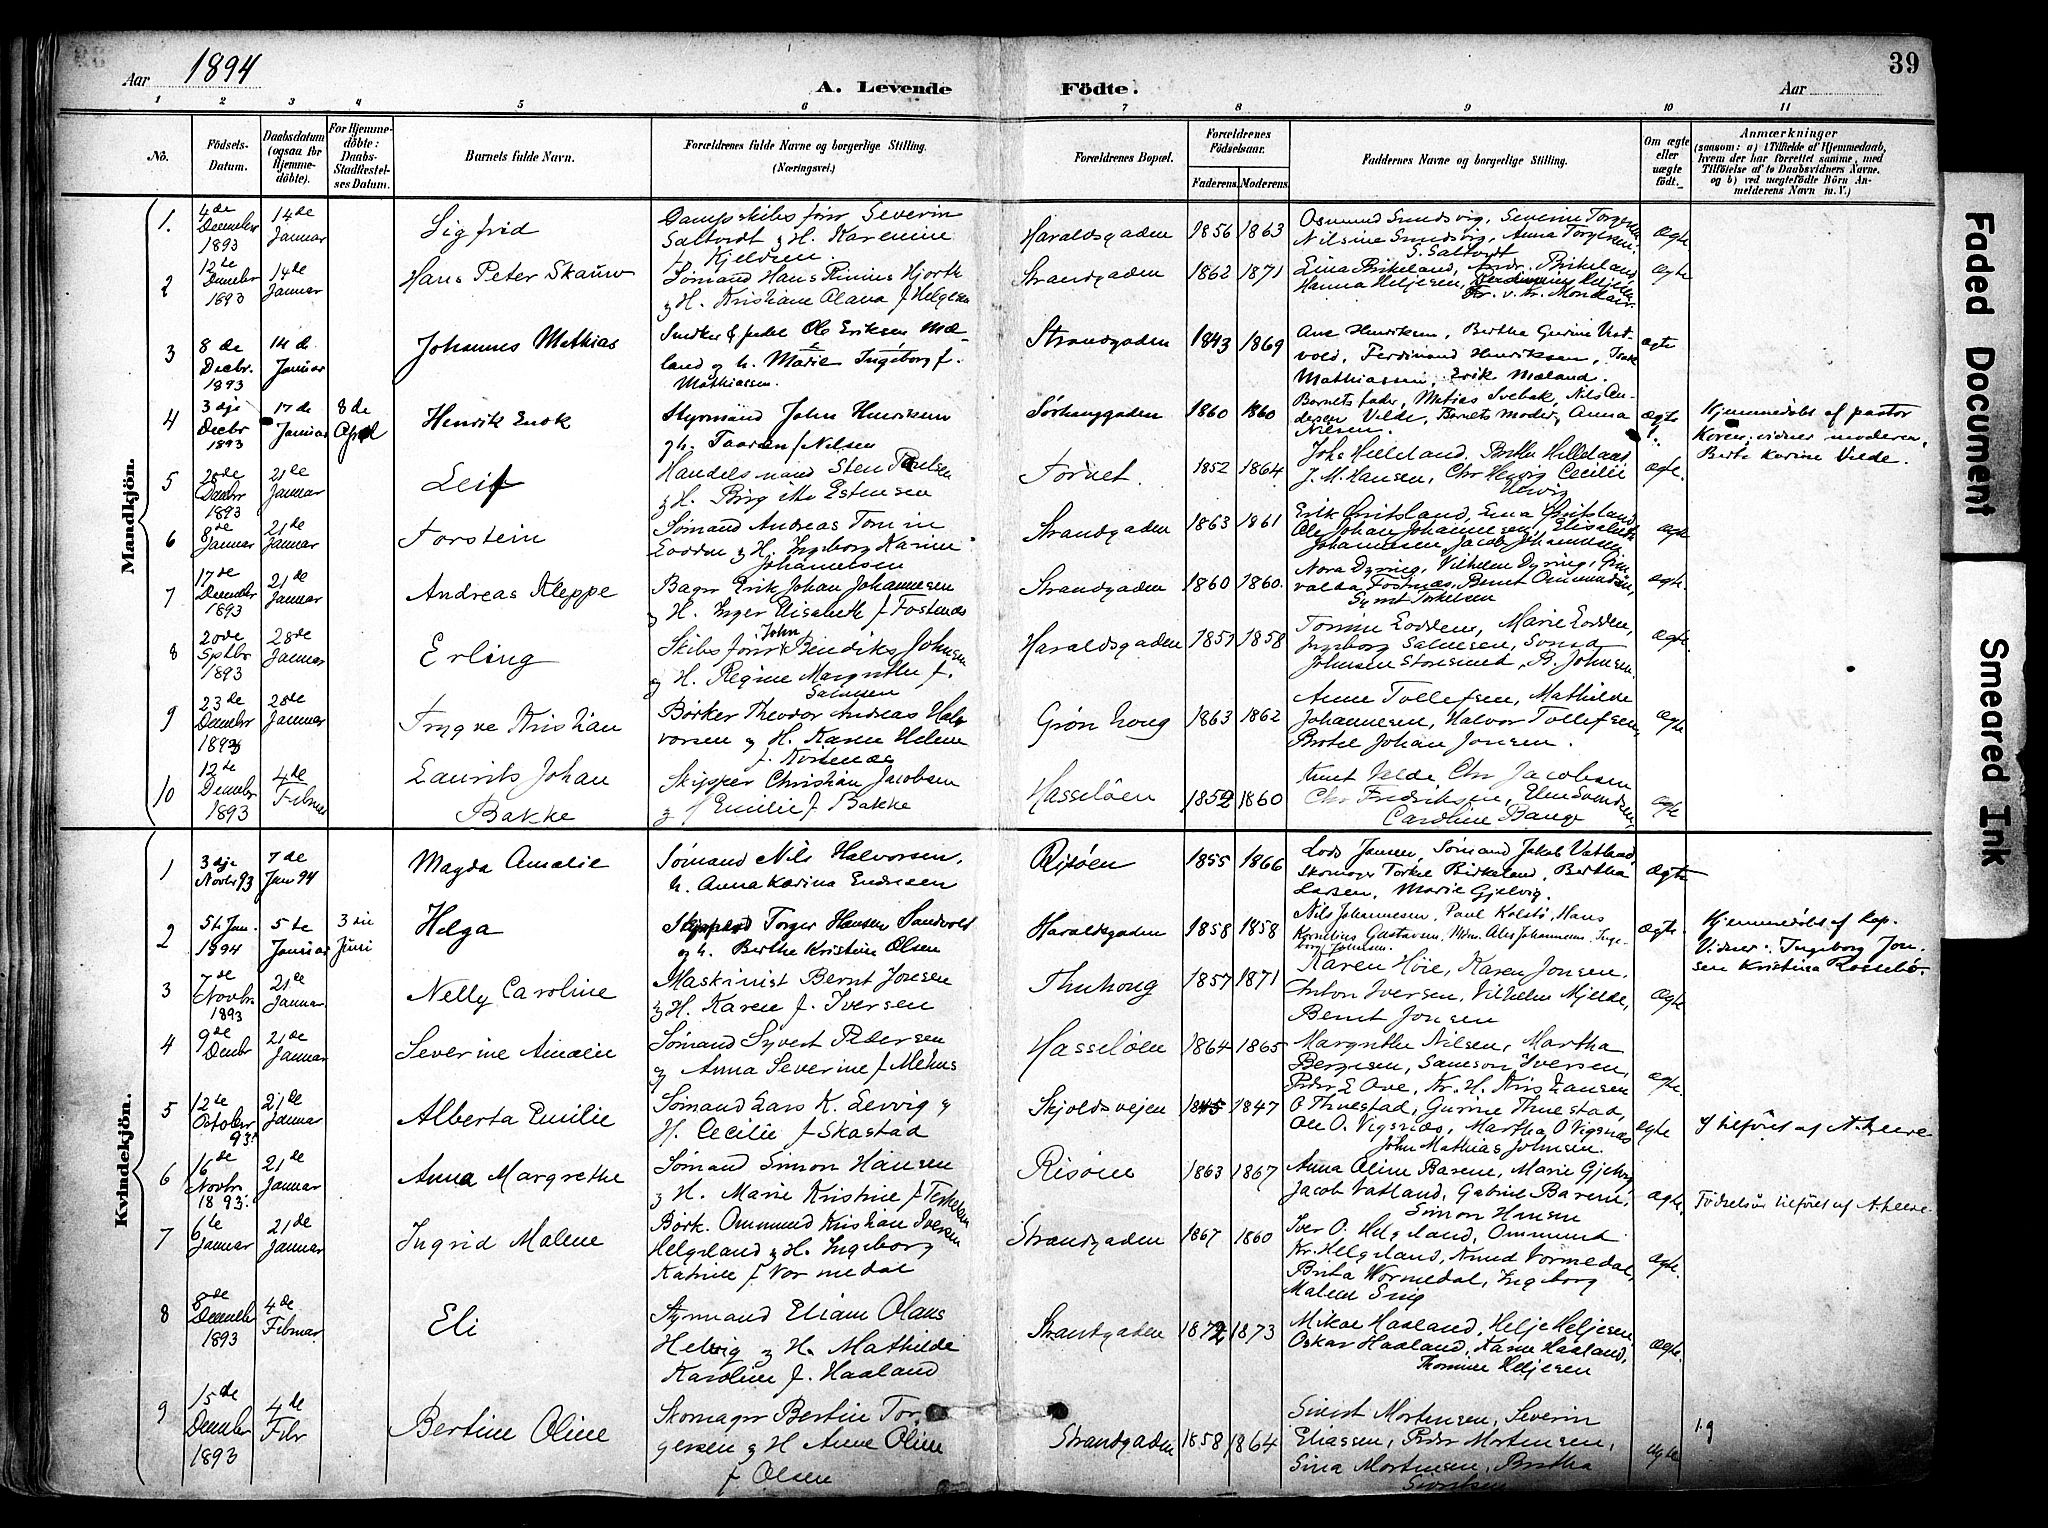 Aar 1894
A. Levende Födte.
Aar
39
1 2 3 4 5 6 7 8 9 10 11
No.
Födsels-Datum.
Daabsdatum (ogsaa for Hjemme-döbte).
For Hjemme-döbte: Daabs-Stadfæstel-ses Datum.
Barnets fulde Navn.
Forældrenes fulde Navne og borgerlige Stilling. (Næringsvei.)
Forældrenes Bopæl.
Forældrenes Födselsaar.
Faderens. Moderens.
Faddernes Navne og borgerlige Stilling.
Om ægte eller uægte födt.
Anmærkninger
(saasom: a) i Tilfælde af Hjemmedaab, hvem der har forrettet samme, med Tilföielse af to Daabsvidners Navne, og b) ved uægtefödte Börn Anmelderens Navn m. V.)
Mandkjön.
1. 4de Decembr 1893 14de Januar Sigfrid Dampskibsförer Severin Saltvedt og H. Karenine f Kjeldsen. Haraldsgaden 1856 1863 Osmund Sundsvig, Severine Torgersen Nilsine Sundsvig, Anna Torgersen. S. Saltvedt ægte
2 12te Decembr 1893 14de Januar Hans Peter Skauw Sömand Hans Rinius Hjorth og H. Kristiane Olava f Helgesen Strandgaden 1862 1871 Lina Birkeland, Andr. Birkeland, Hanna Heljesen, ægte
3 8de Decbr. 1893 14de Januar Johannes Mathias Snedker Ole Eriksen Mæland og h. Marie Ingeborg f. Mathiassen. Strandgaden 1843 1869 Ane Henriksen, Bertha Gurine Vestvold, Ferdinand Henriksen, Isak Mathiassen, Erik Mæland. ægte
4 3dje Decbr 1893 17de Januar 8de April Henrik Enok Styrmand John Henriksen og h. Taaren f Nilsen Sörhauggaden 1860 1860 Barnets fader, Matias Svebak, Nils Endresen Velde, Barnets moder, Anna Nilsen. ægte Hjemmedöbt af pastor Koren; vidner moderen, Berte Karine Velde.
5 20de Decbr 1893 21de Januar Leif Handelsmand Sten Paulsen og H. Birgitte Estensen Torvet. 1852 1864 Johs Helleland, Bertha Helleland J. M. Hansen, Chr Hervig Cecilie Hervig ægte.
6 8de Januar 21de Januar Torstein Sömand Andreas Tomin Lodden og H. Ingeborg Karine Johannesen Strandgaden 1863 1861 Erik Qvitsland, Lina Qvitsland, Ole Johan Johannesen, Elisabeth Johannesen Jacob Johannesen ægte
7 17de Decembr 1893 21de Januar Andreas Kleppe Bager Erik Johan Johannesen og H. Inger Elisabeth f Fostenæs Strandgaden 1860 1860. Nora Dyring, Vilhelm Dyring, Fostnæs, Bernt Ommundsen, Syvert Torkelsen ægte.
8 20de Sptbr 1893 28de Januar Erling Skibsförer John Bendiks Johnsen og H. Regine Margrethe f. Salvesen Haraldsgaden 1851 1858 Tomine Lodden, Marie Lodden, Ingeborg Salvesen, Johnsen Storesund, B. Johnsen. ægte.
9 23de Decembr 1893 28de Januar Trygve Kristian Börker Theodor Andreas Halvorsen og H. Karen Helene f. Grönhoug 1863 1862 Anne Tollefsen, Mathilde Johannesen, Halvor Tollefsen, Brotel Johan Jonsen. ægte
10 12te Decembr 1893 4de Februar Laurits Johan Bakke Skipper Christian Jacobsen og H Emilie f Bakke Hasselöen 1852 1860 Knut Velde Chr Jacobsen Chr Fredriksen, Elen Svendsen, Caroline Bauge ægte
Kvindekjön.
1 3dje Novbr 93 7de Jan 94 Magda Amalie Sömand Nils Halvorsen, h. Anna Karina Endresen Risöen 1855 1866 Lods Jansen, Sömand Jakob Vatland, Skomager Torkel Birkeland, Bertha Larsen, Marie Gjelvig. ægte
2 5te Jan. 1894 5te Januar 3die Juni Helga Torger Hansen Sandvold og h. Berthe Kristine Olsen Haraldsgaden 1858 1858 Nils Johannesen, Paul Kolstö, Hans Kornelius Gustavsen, Johannesen, Ingeborg Johnsen. ægte Hjemmedöbt af kap. Vidner: Ingeborg Jonsen Kristina Rossebö.
3 7de Novbr. 1893 21de Januar Nelly Caroline Maskinist Bernt Jonsen og H. Karen f. Iversen Thuhoug 1857 1871 Karen Höie, Karen Jonsen, Anton Iversen, Vilhelm Mjelde, Bernt Jonsen ægte
4 9de Decbr 21de Januar Severine Amalie Sömand Syvert Pedersen og Anna Severine f Mehus Hasselöen 1864 1865 Margrethe Nilsen, Martha Bergesen, Samson Iversen, Peder E Ove, Kr. H. Kristiansen ægte.
5 12te October 93. 21de Januar Alberta Emilie Sömand Lars K. Lervig og H. Cecilie f Skastad Skjoldsvejen 1845 1847 O Thuestad, Gurine Thuestad, Ole O. Vigsnæs, Martha O Vigsnæs John Mathias Johnsen. ægte S tilföiet af A. Leere
6 16de Novbr. 1893. 21de Januar Anna Margrethe Sömand Simon Hansen og H. Marie Kristine f Terkelsen Risöen 1863 1867 Anna Oline Barene, Marie Jacob Vatland, Gabriel Barene, Simon Hansen ægte. Födselsår tilföiet af A. Leere
7 6te Januar 21de Januar Ingrid Malene Börk. Ommund Kristian Iversen Helgeland og H. Ingeborg Katrine f Vormedal Strandgaden 1867 1860 Iver O. Helgeland, Ommund Kr. Helgeland, Knud Vormedal, Brita Wormedal, Ingeborg Malene ægte.
8 8de Decembr 1893 4de Februar Eli Styrmand Eliam Olaus Helvig og H. Mathilde Karoline f. Haaland Strandgaden 1872 1873 Mikal Haaland, Helje Heljesen Oskar Haaland, Karen Haaland, Thomine Heljesen ægte.
9 15de Decembr 1893 4de Febr Bertine Oline Skomager Bertin Torgersen og H Anne Oline f Olsen Strandgaden 1858 1864 Sivert Mortensen, Severin Eliassen, Peder Mortensen, Sina Mortensen, Bertha Sivertsen ægte 1.9
Faded Document
Smeared Ink